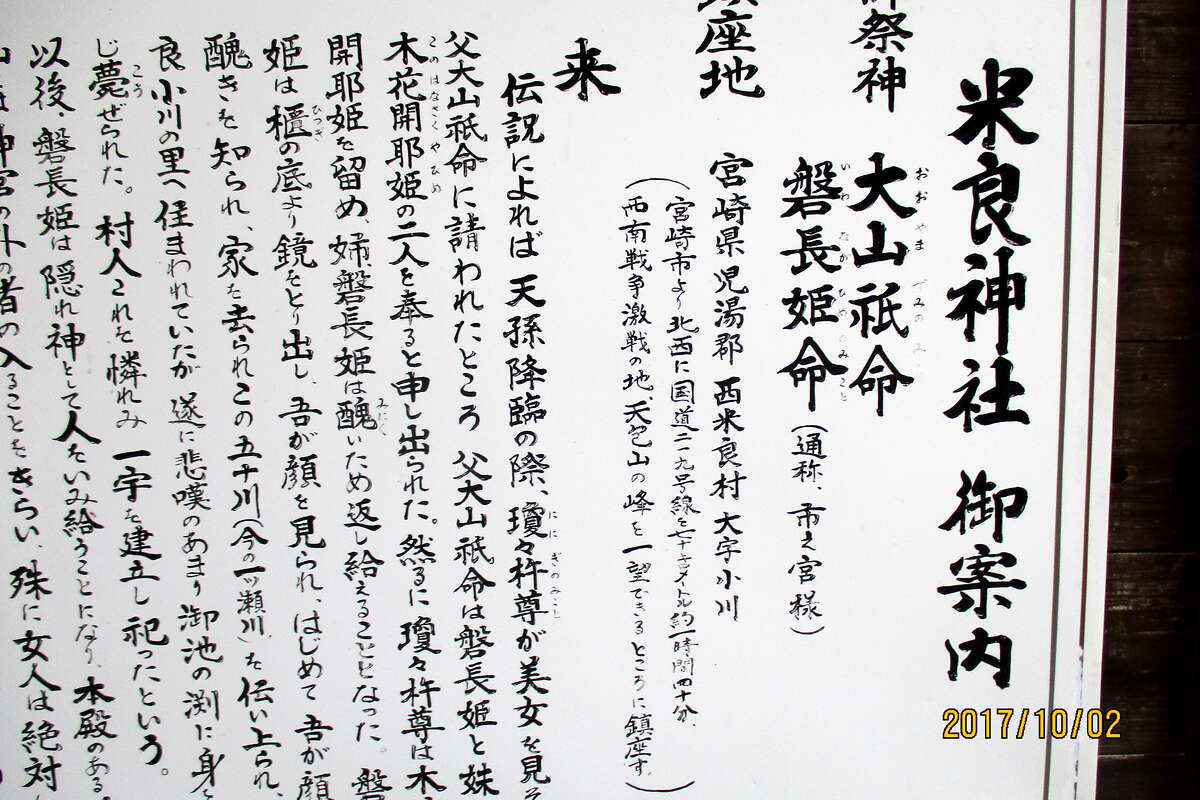 米良神社 御案内
御祭神 大山祇命
おおやまづみのみ
磐長姫命(通称、市之宮様)
いわながひめのみこと
座地 宮崎県児湯郡西米良村大字小川
(宮崎市より北西に国道二一九号線を七十キロメートル約一時間四十分、
西南戦争激戦の地、天包山の峰を一望できるところに鎮座す。)
来
伝説によれば天孫降臨の際、瓊々杵尊が美女を見そ
ににぎのみこと
父大山祇命に請われたところ父大山祇命は磐長姫と妹
木花開耶姫の二人を奉ると申し出られた。然るに瓊々杵尊は木
このはなさくやひめ
開耶姫を留め、姉磐長姫は醜いため返し給えることとなった。磐
みにく
姫は櫃の底より鏡をとり出し、吾が顔を見られ、はじめて吾が顔
ひつぎ
醜きを知られ、家を去られこの五十川(今の一ッ瀬川)を伝い上られ、
良小川の里へ住まわれていたが遂に悲嘆のあまり御池の渕に身を
じ薨ぜられた。村人これを憐れみ一宇を建立し祀ったという。
こう
以後、磐長姫は隠れ神として人をいみ給うことになり、本殿のある
神宮の外の者の入ることをきらい、殊に女人は絶対
2017/10/02